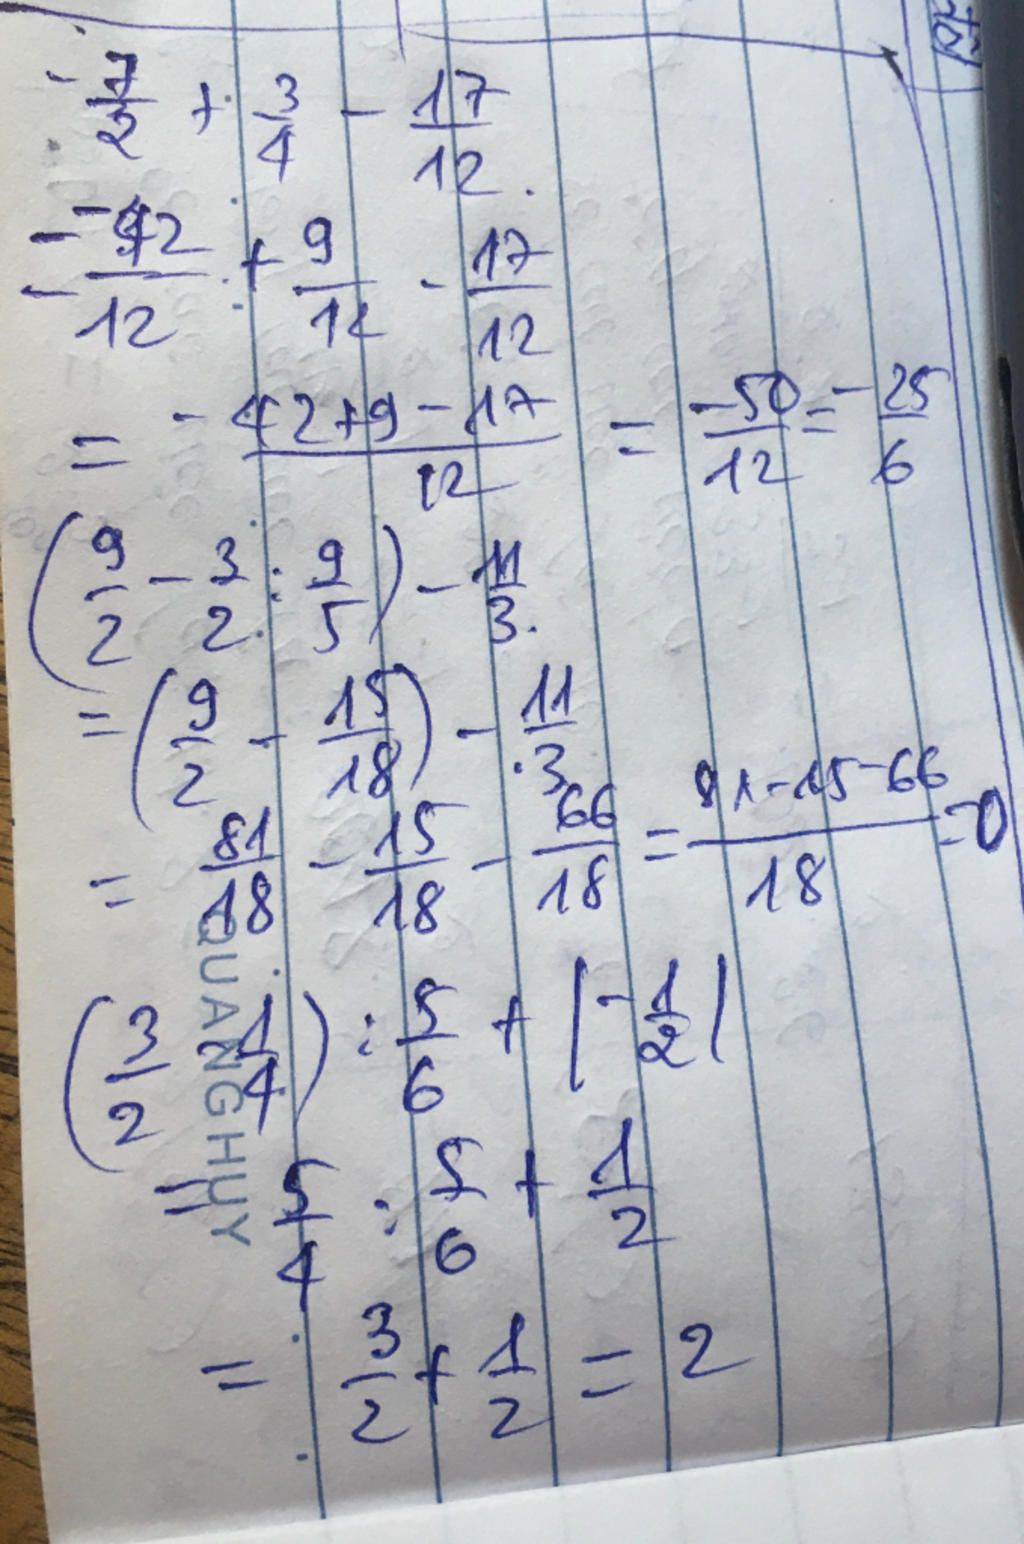 - 7/2 + 3/4 - 17/12.
- 42/12 + 9/12 - 17/12
= - 42+9-17/12 = -50/12 = - 25/6
(9/2 - 3/2 : 9/5) - 11/3.
= (9/2 - 15/18) - 11/3
= 81/18 - 15/18 - 66/18 = 81-15-66/18 = 0
(3/2 - 1/4) : 5/6 + |-1/2|
= 5/4 : 5/6 + 1/2
= 3/2 + 1/2 = 2
QUANG HUY